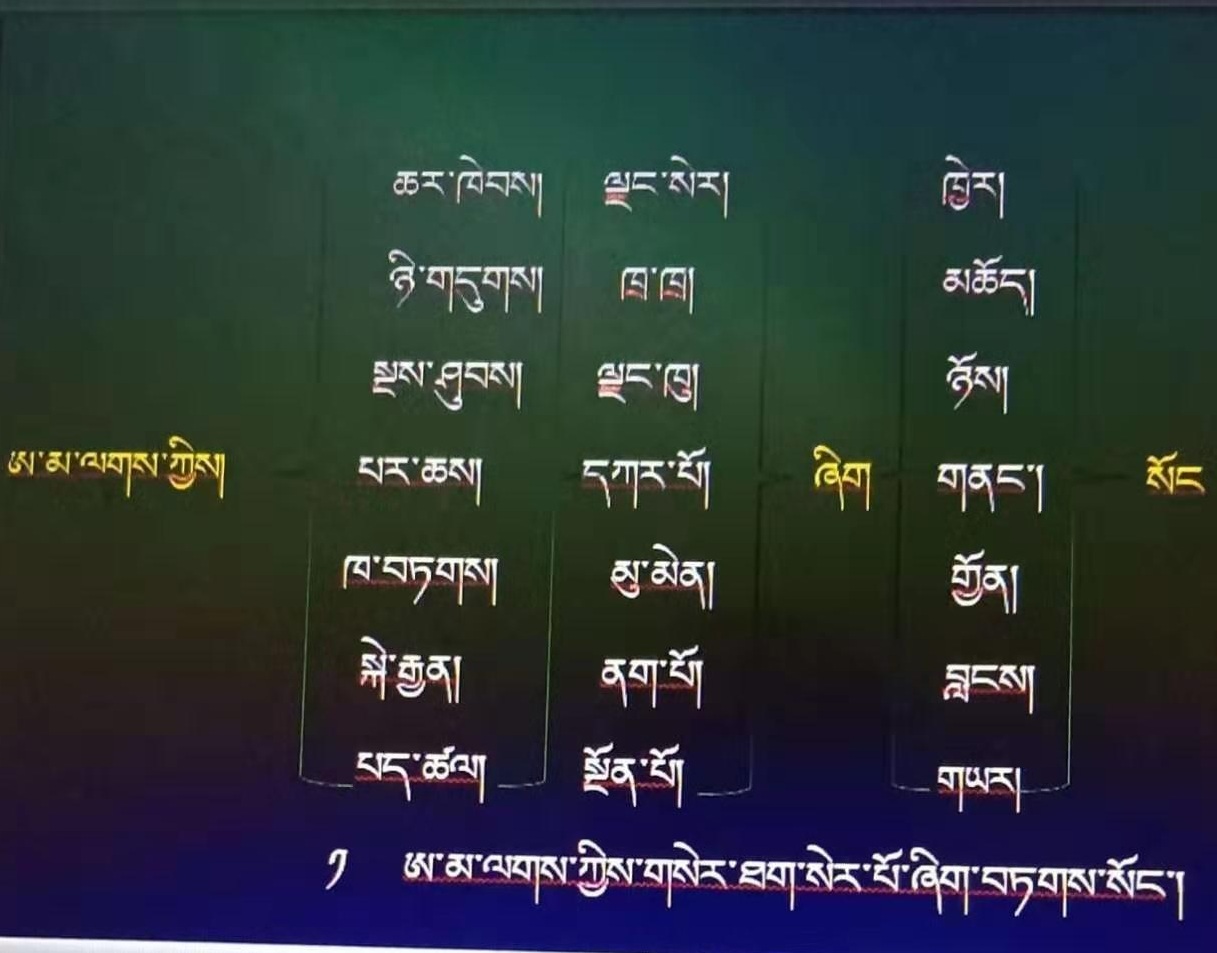 ཆར་ཁེབས། ལྗང་སེར། ཁྱེར།
ཉི་གདུགས། ཁྲ་ཁྲ། མཆོད།
སྔས་ཤུབས། ལྗང་ཁུ། ཉོས།
ཨ་མ་ལགས་ཀྱིས། པར་ཆས། དཀར་པོ། ཞིག གནང་། སོང
ཁ་བཏགས། མུ་མེན། གྱོན།
སྐེ་རྒྱན། ནག་པོ། བླངས།
པད་ཚལ། སྔོན་པོ། གཡར།
༡ ཨ་མ་ལགས་ཀྱིས་གསེར་ཐག་སེར་པོ་ཞིག་བཏགས་སོང་།